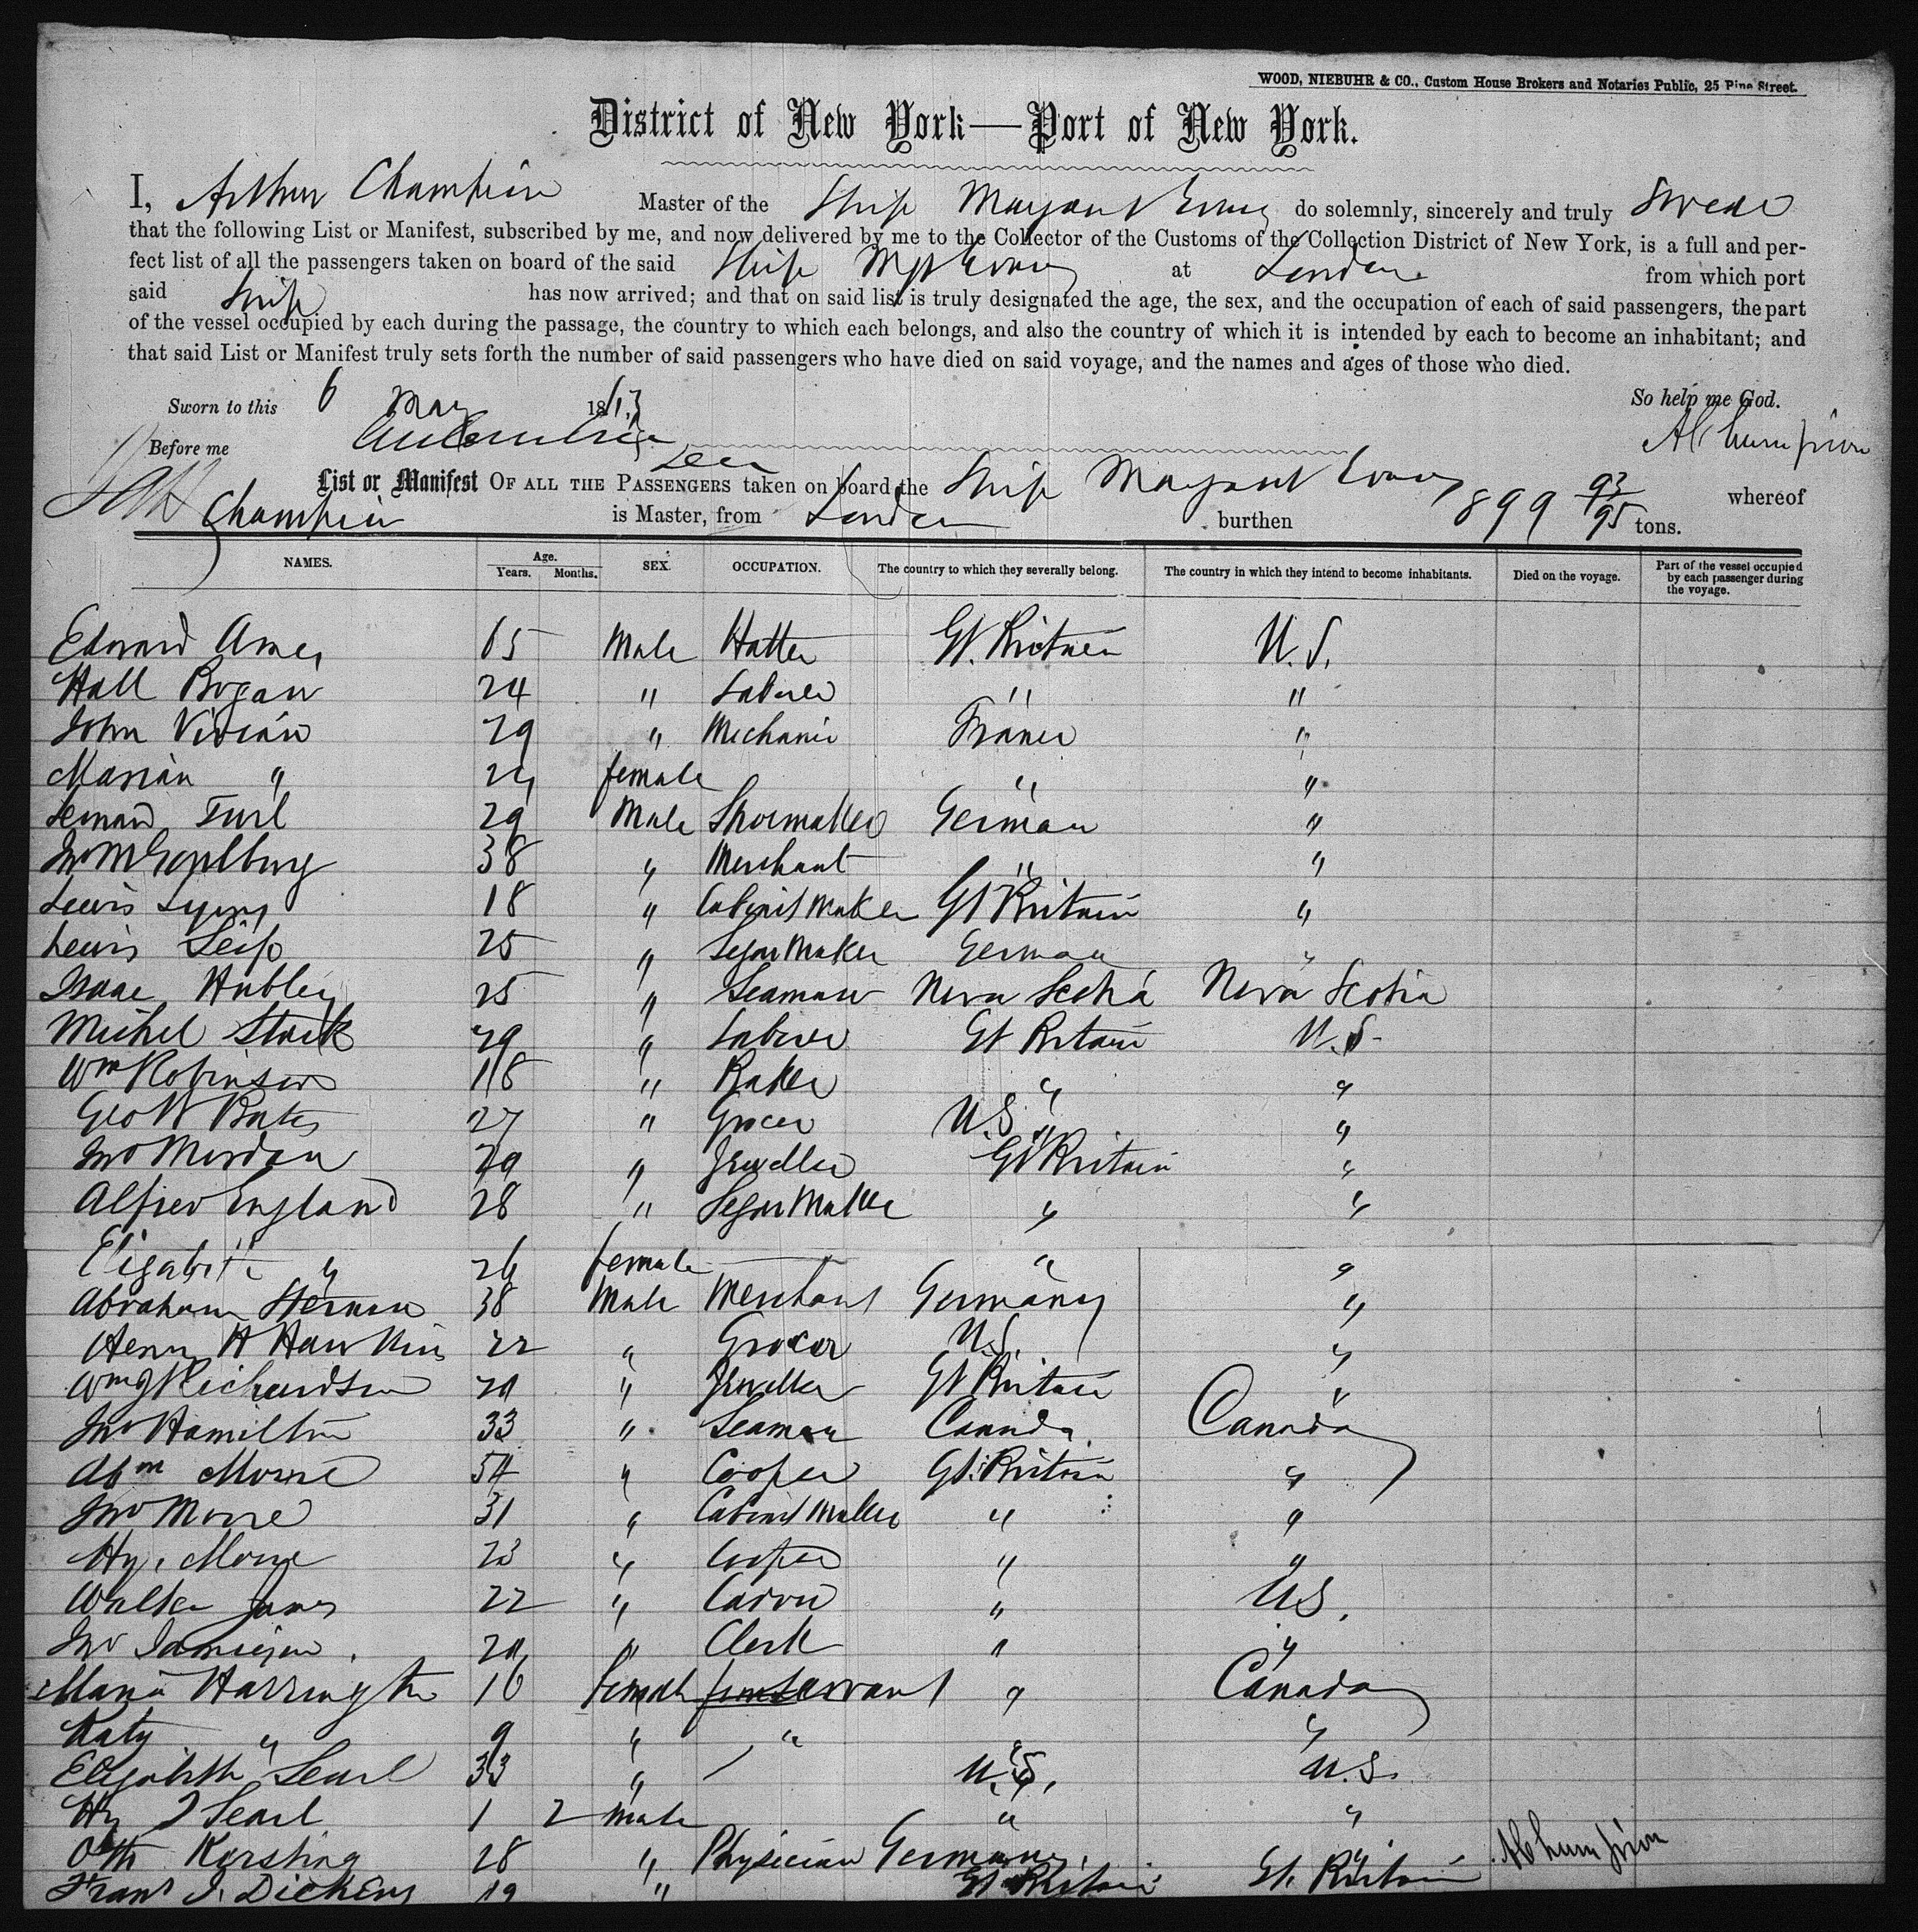 WOOD, NIEBUHR & CO., Custom House Brokers and Notaries Public, 25 Pine Street.
District of New York—Port of New York.
I, Arthur Champion Master of the Ship Margaret Evans do solemnly, sincerely and truly Swear
that the following List or Manifest, subscribed by me, and now delivered by me to the Collector of the Customs of the Collection District of New York, is a full and per-
fect list of all the passengers taken on board of the said Ship Mgt Evans at London from which port
said Ship has now arrived; and that on said list is truly designated the age, the sex, and the occupation of each of said passengers, the part
of the vessel occupied by each during the passage, the country to which each belongs, and also the country of which it is intended by each to become an inhabitant; and
that said List or Manifest truly sets forth the number of said passengers who have died on said voyage, and the names and ages of those who died.
Sworn to this 6 May 18 So help me God.
Before me A Champion
List or Manifest OF ALL THE PASSENGERS taken on board the Ship Margaret Evans whereof
Champion is Master, from London burthen 899 93/95 tons.
NAMES. Age. Years. Months. SEX. OCCUPATION. The country to which they severally belong. The country in which they intend to become inhabitants. Died on the voyage. Part of the vessel occupied by each passenger during the voyage.
Edward Ames 65 Male Hatter Gt. Britain U.S.
Hall Bogan 24 " Laborer " "
John Vivian 29 " Mechanic France "
Marian " 24 female " "
Turl 29 Male Shoemaker German "
Jno 38 " Merchant " "
Lewis Lyons 18 " Cabinet Maker Gt Britain "
Lewis 25 " Segar Maker German "
Isaac Hubley 25 " Seaman Nova Scotia Nova Scotia
Michel Stack 29 " Laborer Gt Britain U.S.
Wm Robinson 18 " Baker " "
Geo W Bates 27 " Grocer U.S. "
Jno Mordan 29 " Jeweller Gt Britain "
Alfred England 28 " Segar Maker " "
Elizabeth " 26 female " "
Abraham Herman 38 Male Merchant Germany "
Henry H Hawkins 22 " Grocer U.S. "
Wm J Richardson 29 " Jeweller Gt Britain "
Jno Hamilton 33 " Seaman Canada Canada
Abm Morse 54 " Cooper Gt. Britain "
Jno Morse 31 " Cabinet Maker " "
Hy. Morse 23 " Cooper " "
Walter James 22 " " U.S.
Jno Jamieson 24 " Clerk " "
Maria Harrington 16 Female Servant " Canada
Katy " 9 " " " "
Elizabeth Searl 33 " U.S. U.S.
Hy J Searl 1 2 Male " "
Otto Kersting 28 " Physician Germany "
Frans J. Dickens 19 " Gt Britain Gt. Britain
A Champion